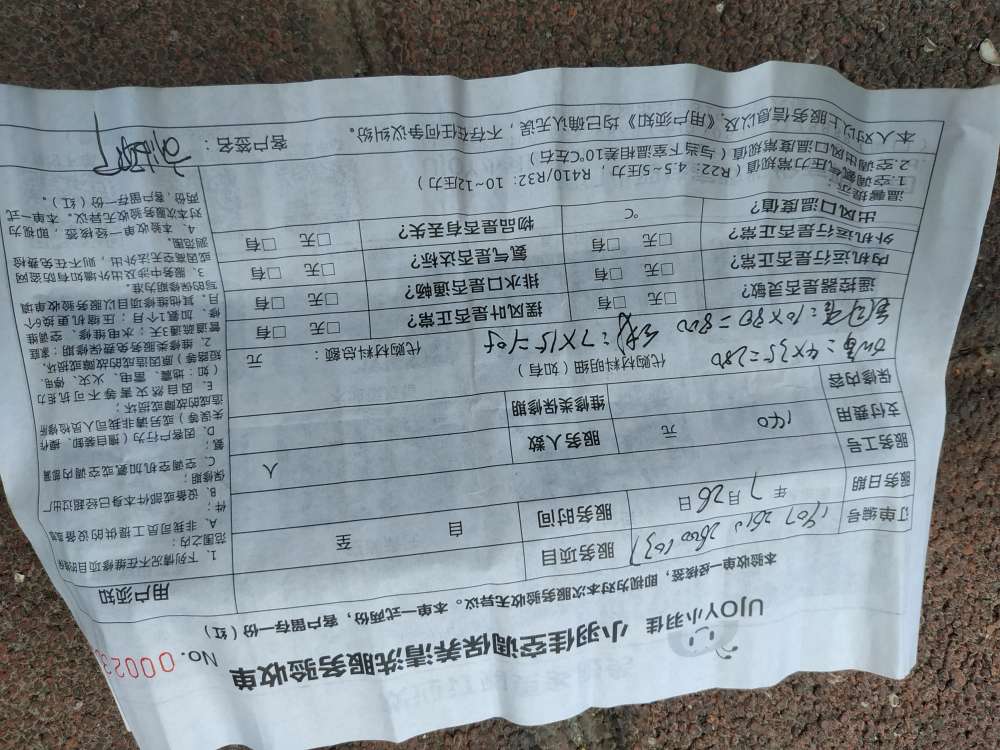 UJOY小羽佳 小羽佳空调保养清洗服务验收单
No. 00023
本验收单一经核签，即视为对本次服务验收无异议。本单一式两份，客户留存一份（红）
订单编号
服务项目
服务日期 年 7 月 26 日
服务时间 自 至
服务工号
服务人数 人
支付费用 140 元
维修类保修期
保修内容
代购材料明细（如有）
代购材料总额： 元
遥控器是否灵敏？ □无 □有
摆风叶是否正常？ □无 □有
内机运行是否正常？ □无 □有
排水口是否通畅？ □无 □有
外机运行是否正常？ □无 □有
氨气是否达标？ □无 □有
出风口温度值？ ℃
物品是否有丢失？ □无 □有
温馨提示：
1.空调氨气压力常规值（R22：4.5~5压力，R410/R32：10~12压力）
2.空调出风口温度常规值（与当下室温相差10℃左右）
本人对以上服务信息，以及《用户须知》均已确认无误，不存在任何争议纠纷。
客户签名：
用户须知
1、下列情况不在维修项目的
范围之内：
A、非我司员工提供的设备
件；
B、设备或部件本身已经超过
保修期；
C、空调空机加氨或空调内
氨；
D、因客户行为（擅自装卸、操作
失误等）或另请非我司人员检修所
造成的故障或损坏；
E、因自然灾害等不可抗拒力
（如：地震、雷电、火灾、停电、
短路等）原因造成的故障或损坏。
2、维修类服务免费保修期：家庭
管道疏通3天；水电维修、空调维
修、加氨1个月；压缩机更换6个
月，其他维修项目以服务验收单填
写的保修期为准。
3、服务中涉及出外墙如有防盗网
或因高空无法外出，则不在免费检
测范围。
4、本验收单一经核签，即视为
对本次服务验收无异议。本单一式
两份，客户留存一份（红）。